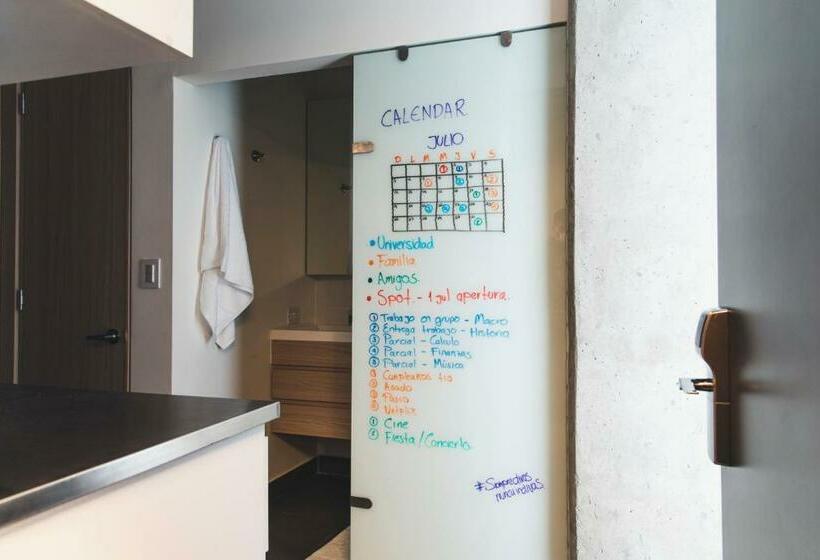 CALENDAR
JULIO
D L M M J V S
• Universidad
• Familia
• Amigos
• Spot - 1 jul apertura.
① Trabajo en grupo - Macro
② Entrega trabajo - Historia
③ Parcial - Calculo
④ Parcial - Finanzas
⑤ Parcial - Música
① Cumpleaños tia
② Asado
③ Paseo
④ Netflix
① Cine
② Fiesta / Concierto